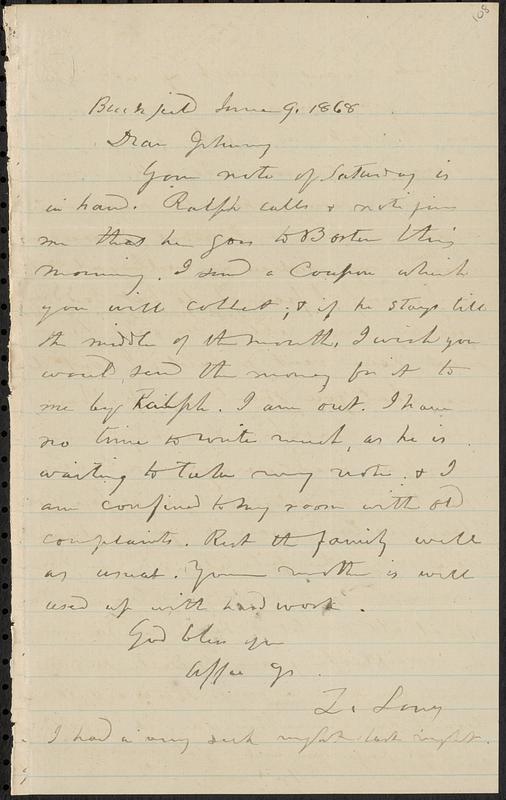 108
Buckfield June 9, 1868
Dear Johnny
Your note of Saturday is
in hand. Ralph calls & notifies
me that he goes to Boston this
morning. I send a Coupon which
you will collect; & if he stays till
the middle of the month, I wish you
would send the money for it to
me by Ralph. I am out. I have
no time to write much, as he is
waiting to take my note, & I
am confined to my room with old
complaints. Rest the family well
as usual. Your mother is well
used up with hard work.
God bless you
Affec ys
Z. Long
I had a very sick night last night.